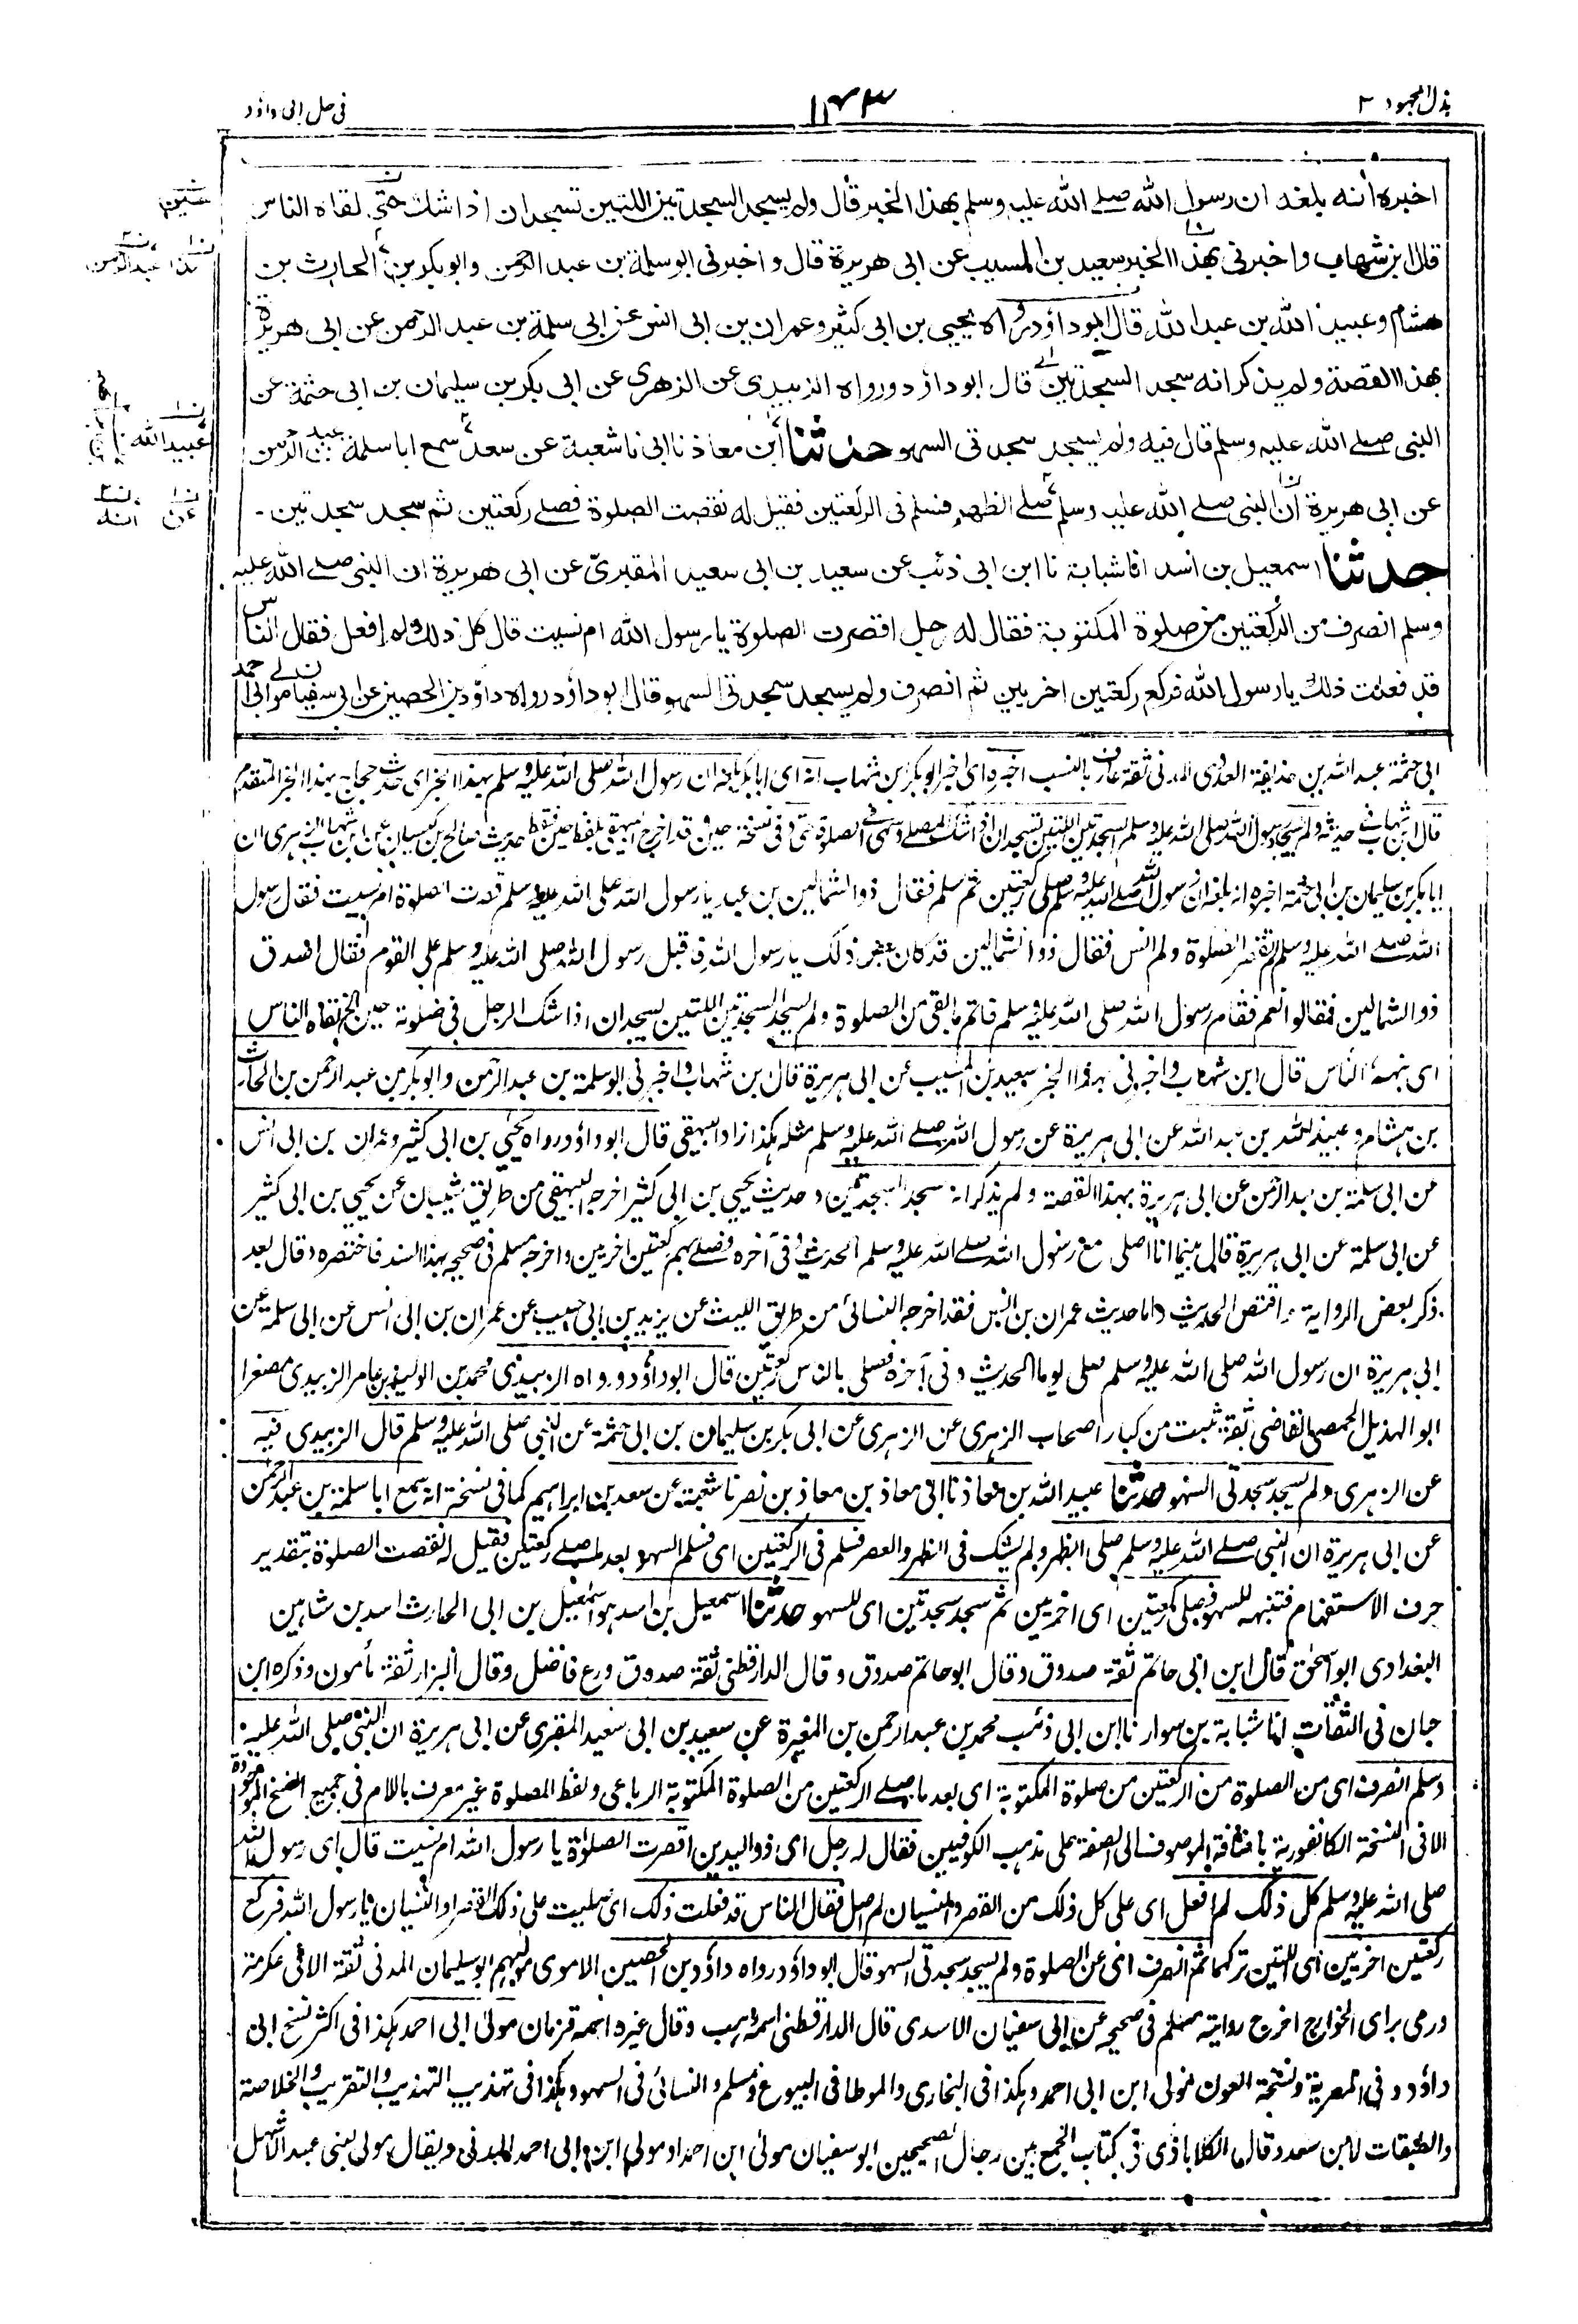 بذل المجهود ٢
١٤٣
فى حل ابى داؤد
اخبره أنه بلغه ان رسول الله صلے الله عليه وسلم بهذا الخبر قال ولم يسجد السجدتين اللتين تسجدان اذا شك حتى لقاه الناس
قال ابن شهاب واخبرنى بهذا الخبر سعيد بن المسيب عن ابى هريرة قال واخبرنى ابو سلمة بن عبد الرحمن وابو بكر بن الحارث بن
هشام وعبيد الله بن عبد الله قال ابو داؤد رواه يحيى بن ابى كثير وعمران بن ابى انس عن ابى سلمة بن عبد الرحمن عن ابى هريرة
بهذا القصة ولم يذكر انه سجد السجدتين قال ابو داؤد ورواه الزبيدى عن الزهرى عن ابى بكر بن سليمان بن ابى حثمة عن
النبى صلے الله عليه وسلم قال فيه ولم يسجد سجدتى السهو حدثنا ابن معاذ نا ابى نا شعبة عن سعد سمع ابا سلمة بن عبد الرحمن
عن ابى هريرة أن النبى صلے الله عليه وسلم صلے الظهر فسلم فى الركعتين فقيل له نقصت الصلوة فصلے ركعتين ثم سجد سجدتين -
حدثنا اسمعيل بن اسد انا شبابة نا ابن ابى ذئب عن سعيد بن ابى سعيد المقبرى عن ابى هريرة ان النبى صلے الله عليه
وسلم انصرف من الركعتين من صلوة المكتوبة فقال له رجل اقصرت الصلوة يا رسول الله ام نسيت قال كل ذلك ولم افعل فقال الناس
قد فعلت ذلك يا رسول الله فركع ركعتين اخريين ثم انصرف ولم يسجد سجدتى السهو قال ابو داؤد رواه داؤد بن الحصين عن ابى سفيان مولى ابى احمد
عبيد الله
عن انه
ابى حثمة عبد الله بن حذيفة العدوى المدنى ثقة عارف بالنسب اخبره اى اخبر ابو بكر بن شهاب انه اى ابا بكر بلغه ان رسول الله صلى الله عليه وسلم بهذا الخبر اى حدث حجاج بهذا الخبر المتقدم
قال ابن شهاب فى حديثه ولم يسجد رسول الله صلى الله عليه وسلم السجدتين اللتين تسجدان اذا شك المصلے وسهى فى الصلوة حتى وفى نسخة حين وقد اخرج البيهقى بلفظ حين فقط حديث صالح بن كيسان عن ابن شهاب الزهرى ان
ابا بكر بن سليمان بن ابى حثمة اخبره انه بلغه ان رسول الله صلے الله عليه وسلم صلى ركعتين ثم سلم فقال ذو الشمالين بن عبد يا رسول الله صلى الله عليه وسلم قصرت الصلوة ام نسيت فقال رسول
الله صلے الله عليه وسلم لم تقصر الصلوة ولم انس فقال ذو الشمالين قد كان بعض ذلك يا رسول الله فاقبل رسول الله صلى الله عليه وسلم على القوم فقال اصدق
ذو الشمالين فقالوا نعم فقام رسول الله صلى الله عليه وسلم فاتم ما بقى من الصلوة ولم يسجد السجدتين اللتين تسجدان اذا شك الرجل فى صلوته حين لقاه الناس
اى نبهه الناس قال ابن شهاب واخبرنى بهذا الخبر سعيد بن المسيب عن ابى هريرة قال بن شهاب واخبرنى ابو سلمة بن عبد الرحمن وابو بكر بن عبد الرحمن بن الحارث
بن هشام وعبيد الله بن عبد الله عن ابى هريرة عن رسول الله صلے الله عليه وسلم مثله هكذا زاد البيهقى قال ابو داؤد ورواه يحيى بن ابى كثير وعمران بن ابى انس
عن ابى سلمة بن عبد الرحمن عن ابى هريرة بهذا القصة ولم يذكر انه سجد السجدتين وحديث يحيى بن ابى كثير اخرجه البيهقى من طريق شيبان عن يحيى بن ابى كثير
عن ابى سلمة عن ابى هريرة قال بينما انا اصلى مع رسول الله صلے الله عليه وسلم الحديث وفى آخره فصلے بهم ركعتين اخريين واخرجه مسلم فى صحيحه بهذا السند فاختصره وقال بعد
ذكر بعض الرواية واقتص الحديث واما حديث عمران بن انس فقد اخرجه النسائى من طريق الليث عن يزيد بن ابى حبيب عن عمران بن ابى انس عن ابى سلمة عن
ابى هريرة ان رسول الله صلى الله عليه وسلم صلى يوما الحديث وفى آخره فصلى بالناس ركعتين قال ابو داؤد ورواه الزبيدى محمد بن الوليد بن عامر الزبيدى مصغرا
ابو الهذيل الحمصى القاضى ثقة ثبت من كبار اصحاب الزهرى عن الزهرى عن ابى بكر بن سليمان بن ابى حثمة عن النبى صلى الله عليه وسلم قال الزبيدى فيه
عن الزهرى ولم يسجد سجدتى السهو حدثنا عبيد الله بن معاذ نا ابى معاذ بن معاذ بن نصر نا شعبة عن سعد بن ابراهيم كما فى نسخة انه سمع ابا سلمة بن عبد الرحمن
عن ابى هريرة ان النبى صلے الله عليه وسلم صلى الظهر ولم يشك فى الظهر والعصر فسلم فى الركعتين اى فسلم السهو بعد ما صلے ركعتين فقيل له نقصت الصلوة بتقدير
حرف الاستفهام فتنبه للسهو فصلى ركعتين اى اخريين ثم سجد سجدتين اى للسهو حدثنا اسمعيل بن اسد هو اسمعيل بن ابى الحارث اسد بن شاهين
البغدادى ابو اسحق قال ابن ابى حاتم ثقة صدوق وقال ابو حاتم صدوق وقال الدارقطنى ثقة صدوق ورع فاضل وقال البزار ثقة مأمون وذكره ابن
حبان فى الثقات انا شبابة بن سوار نا ابن ابى ذئب محمد بن عبد الرحمن بن المغيرة عن سعيد بن ابى سعيد المقبرى عن ابى هريرة ان النبى صلى الله عليه
وسلم انصرف اى من الصلوة من الركعتين من صلوة المكتوبة اى بعد ما صلے الركعتين من الصلوة المكتوبة الرباعى ولفظ المصلوة غير معرف باللام فى جميع النسخ الموجودة
الا فى النسخة الكانفورية باضافة الموصوف الى الصفة على مذهب الكوفيين فقال له رجل اى ذو اليدين اقصرت الصلوة يا رسول الله ام نسيت قال اى رسول الله
صلى الله عليه وسلم كل ذلك لم افعل اى على كل ذلك من القصر والنسيان لم اصل فقال الناس قد فعلت ذلك اى صليت على ذلك القصر او النسيان يا رسول الله فركع
ركعتين اخريين اى اللتين تركهما ثم انصرف اى عن الصلوة ولم يسجد سجدتى السهو قال ابو داؤد رواه داؤد بن الحصين الاموى مولاهم ابو سليمان المدنى ثقة الا فى عكرمة
ورمى براى الخوارج اخرج روايته مسلم فى صحيحه عن ابى سفيان الاسدى قال الدارقطنى اسمه وهب وقال غيره اسمه قزمان مولى ابى احمد هكذا فى اكثر نسخ ابى
داؤد وفى المصرية ونسخة العون مولى ابن ابى احمد وهكذا فى البخارى والموطا فى البيوع ومسلم والنسائى فى السهو وهكذا فى تهذيب التهذيب والتقريب والخلاصة
والطبقات لابن سعد وقال الكلاباذى فى كتاب الجمع بين رجال الصحيحين ابو سفيان مولى ابن احمد او مولى ابن ابى احمد المدنى ويقال مولى بنى عبد الاشهل